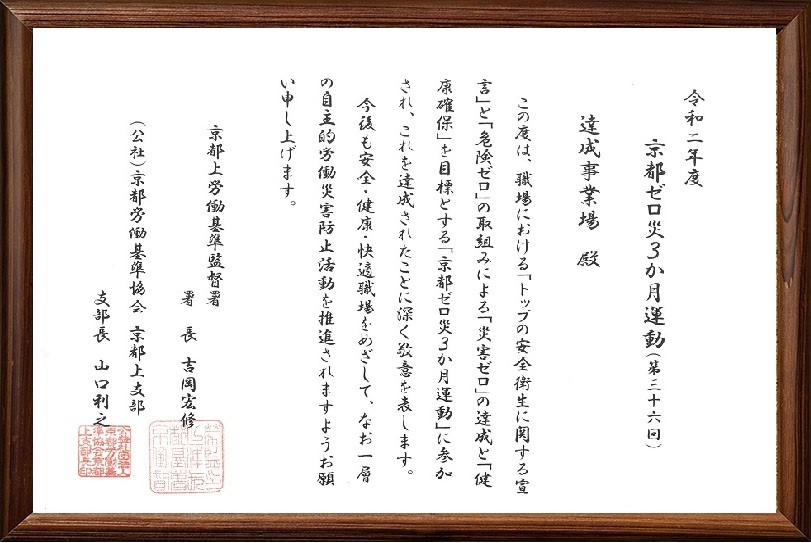 令和二年度
京都ゼロ災3か月運動(第三十六回)
達成事業場 殿
この度は、職場における「トップの安全衛生に関する宣
言」と「危険ゼロ」の取組みによる「災害ゼロ」の達成と「健
康確保」を目標とする「京都ゼロ災3か月運動」に参加
され、これを達成されたことに深く敬意を表します。
今後も安全・健康・快適職場をめざして、なお一層
の自主的労働災害防止活動を推進されますようお願
い申し上げます。
京都上労働基準監督署
署長 吉岡宏修
(公社)京都労働基準協会 京都上支部
支部長 山口利之